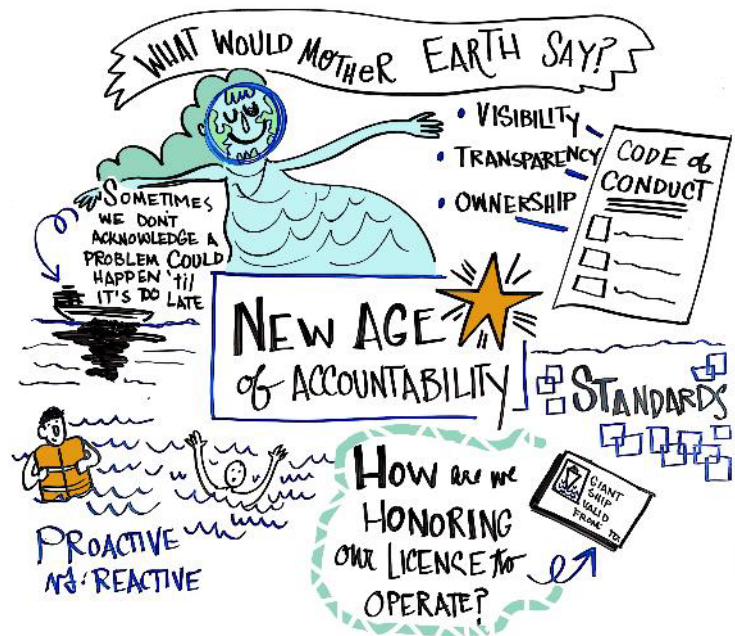 WHAT WOULD MOTHER EARTH SAY?
• VISIBILITY
• TRANSPARENCY
• OWNERSHIP
CODE of
CONDUCT
SOMETIMES
WE DON'T
ACKNOWLEDGE A
PROBLEM COULD
HAPPEN 'til
IT'S TOO LATE
NEW AGE
of ACCOUNTABILITY
STANDARDS
PROACTIVE
vs. REACTIVE
HOW are we
HONORING
our LICENCE to
OPERATE?
GIANT
SHIP
VALID
FROM: TO: